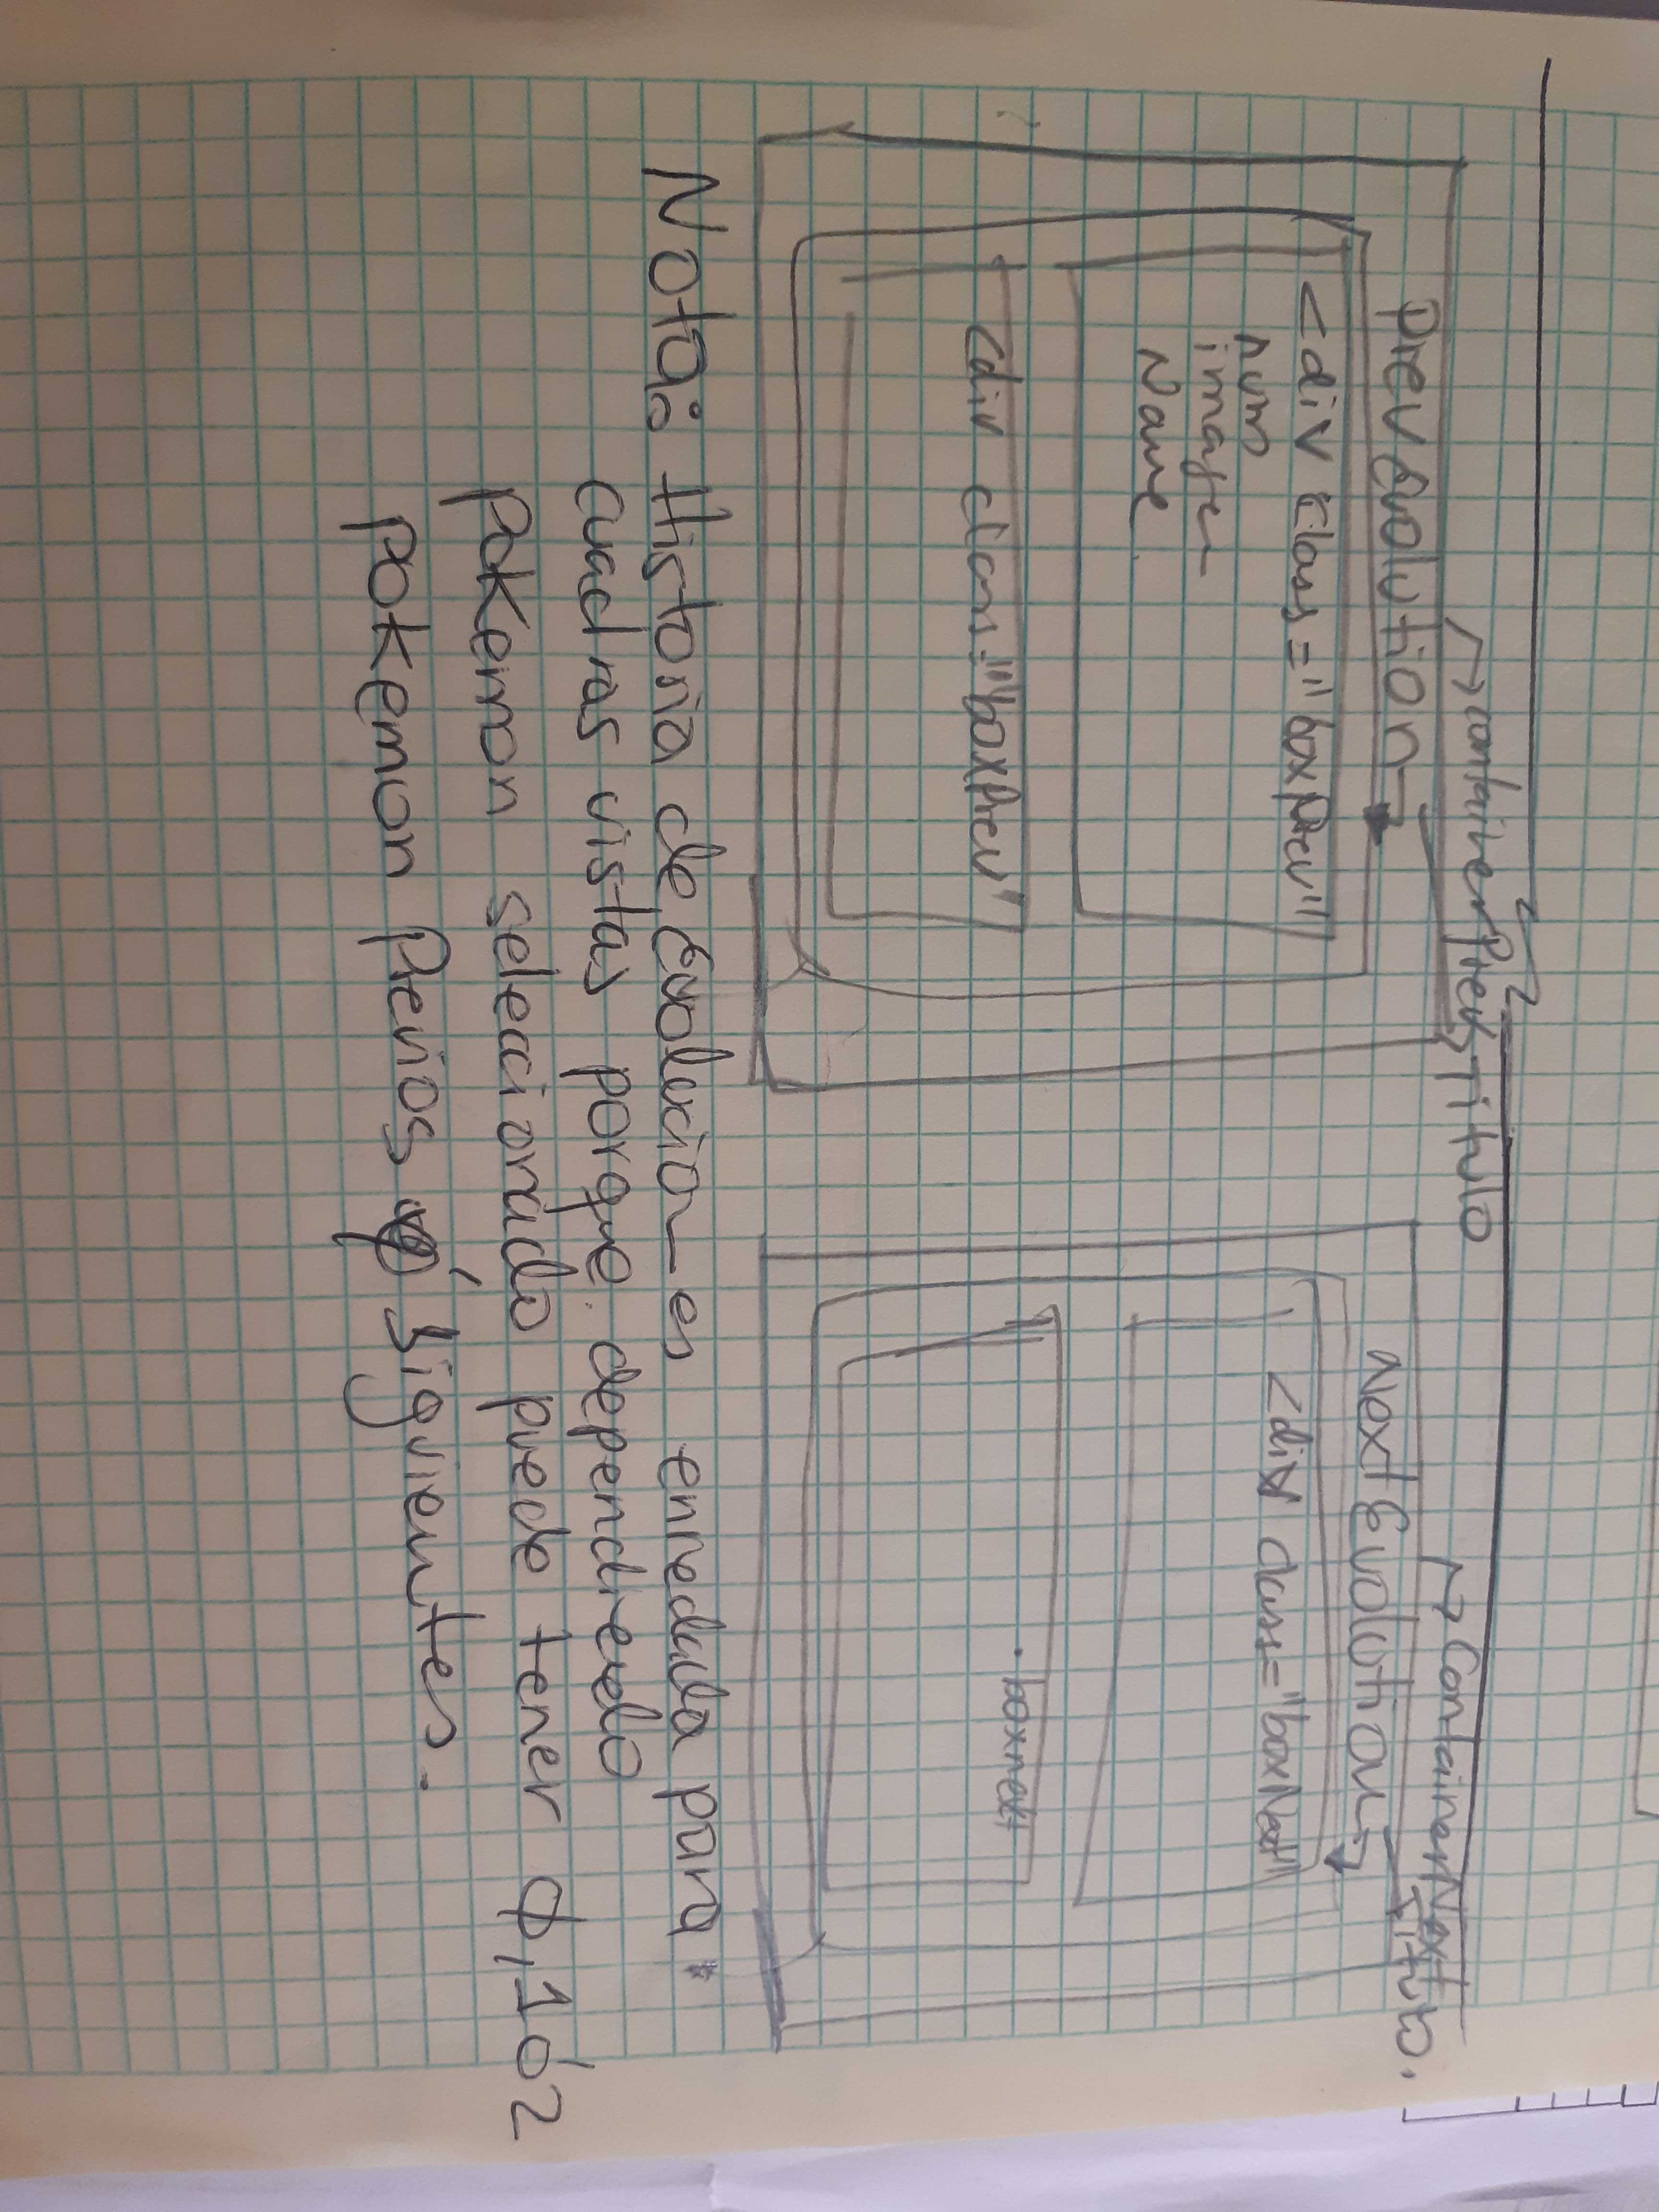 containerPrev Titulo
Prev Evolution
<div class="boxPrev"
num
imagen
Name.
<div class="boxPrev"
ContainerNext
Titulo.
Next Evolution
<div class="boxNext"
.boxnext
Nota: Historia de Evoluciones enredada para
cuadros vistas porque dependiendo
pokemon seleccionado puede tener 0, 1 ó 2
pokemon Previos ó siguientes.